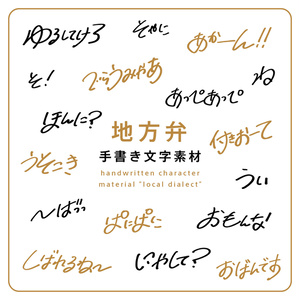 ゆるしてけろ
そやに
あかーん!!
そ!
でらうみゃあ
ね
あっぺあっぺ
ほんに?
地方弁
付きおーて
手書き文字素材
うそこき
handwritten character
material "local dialect"
うぃ
〜ばっ
ぱにぱに
おもんな!
しばれるね〜
いやして?
おばんです